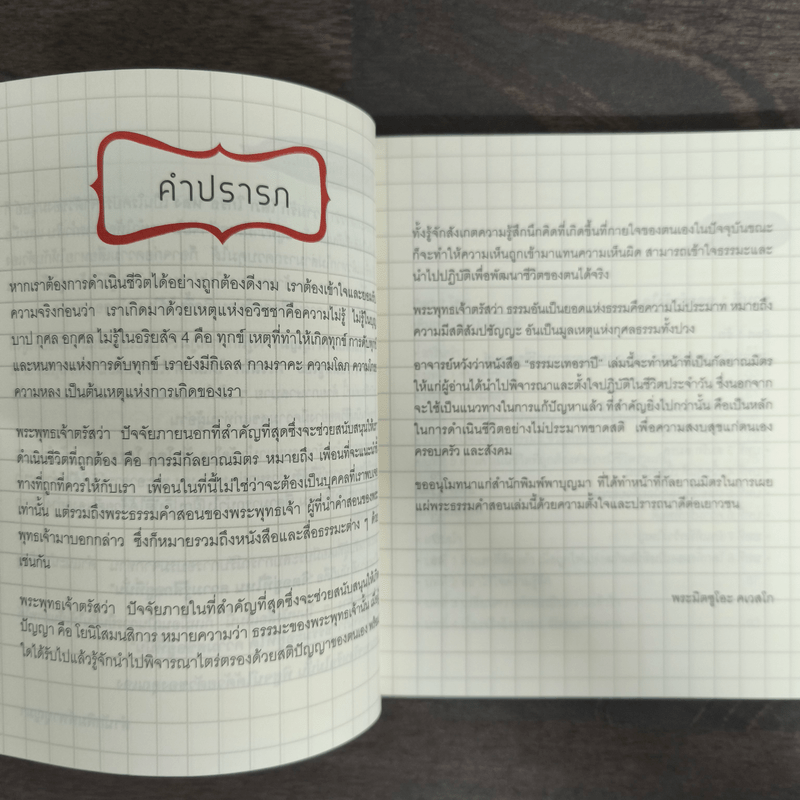 คำปรารภ
หากเราต้องการดำเนินชีวิตได้อย่างถูกต้องดีงาม เราต้องเข้าใจและยอมรับ
ความจริงก่อนว่า เราเกิดมาด้วยเหตุแห่งอวิชชาคือความไม่รู้ ไม่รู้ใน
บาป กุศล อกุศล ไม่รู้ในอริยสัจ 4 คือ ทุกข์ เหตุที่ทำให้เกิดทุกข์ การดับทุกข์
และหนทางแห่งการดับทุกข์ เรายังมีกิเลส กามราคะ ความโลภ ความโกรธ
ความหลง เป็นต้นเหตุแห่งการเกิดของเรา
พระพุทธเจ้าตรัสว่า ปัจจัยภายนอกที่สำคัญที่สุดซึ่งจะช่วยสนับสนุนให้เรา
ดำเนินชีวิตที่ถูกต้อง คือ การมีกัลยาณมิตร หมายถึง เพื่อนที่จะแนะนำ
ทางที่ถูกที่ควรให้กับเรา เพื่อนในที่นี้ไม่ใช่ว่าจะต้องเป็นบุคคลที่เราพบเจอ
เท่านั้น แต่รวมถึงพระธรรมคำสอนของพระพุทธเจ้า ผู้ที่นำคำสอนของพระ
พุทธเจ้ามาบอกกล่าว ซึ่งก็หมายรวมถึงหนังสือและสื่อธรรมะต่าง ๆ ด้วย
เช่นกัน
พระพุทธเจ้าตรัสว่า ปัจจัยภายในที่สำคัญที่สุดซึ่งจะช่วยสนับสนุนให้เกิด
ปัญญา คือ โยนิโสมนสิการ หมายความว่า ธรรมะของพระพุทธเจ้านั้น เมื่อผู้
ใดได้รับไปแล้วรู้จักนำไปพิจารณาไตร่ตรองด้วยสติปัญญาของตนเอง พร้อม
ทั้งรู้จักสังเกตความรู้สึกนึกคิดที่เกิดขึ้นที่กายใจของตนเองในปัจจุบันขณะ
ก็จะทำให้ความเห็นถูกเข้ามาแทนความเห็นผิด สามารถเข้าใจธรรมะและ
นำไปปฏิบัติเพื่อพัฒนาชีวิตของตนได้จริง
พระพุทธเจ้าตรัสว่า ธรรมอันเป็นยอดแห่งธรรมคือความไม่ประมาท หมายถึง
ความมีสติสัมปชัญญะ อันเป็นมูลเหตุแห่งกุศลธรรมทั้งปวง
อาจารย์หวังว่าหนังสือ "ธรรมะเทอราปี" เล่มนี้จะทำหน้าที่เป็นกัลยาณมิตร
ให้แก่ผู้อ่านได้นำไปพิจารณาและตั้งใจปฏิบัติในชีวิตประจำวัน ซึ่งนอกจาก
จะใช้เป็นแนวทางในการแก้ปัญหาแล้ว ที่สำคัญยิ่งไปกว่านั้น คือเป็นหลัก
ในการดำเนินชีวิตอย่างไม่ประมาทขาดสติ เพื่อความสงบสุขแก่ตนเอง
ครอบครัว และสังคม
ขออนุโมทนาแก่สำนักพิมพ์พาบุญมา ที่ได้ทำหน้าที่กัลยาณมิตรในการเผย
แผ่พระธรรมคำสอนเล่มนี้ด้วยความตั้งใจและปรารถนาดีต่อเยาวชน
พระมิตซูโอะ คเวสโก